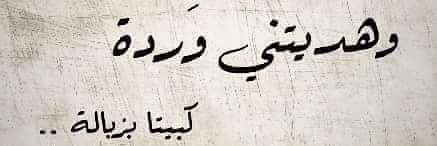 وهديتني وَردة
كَبيتا بزبالة ..